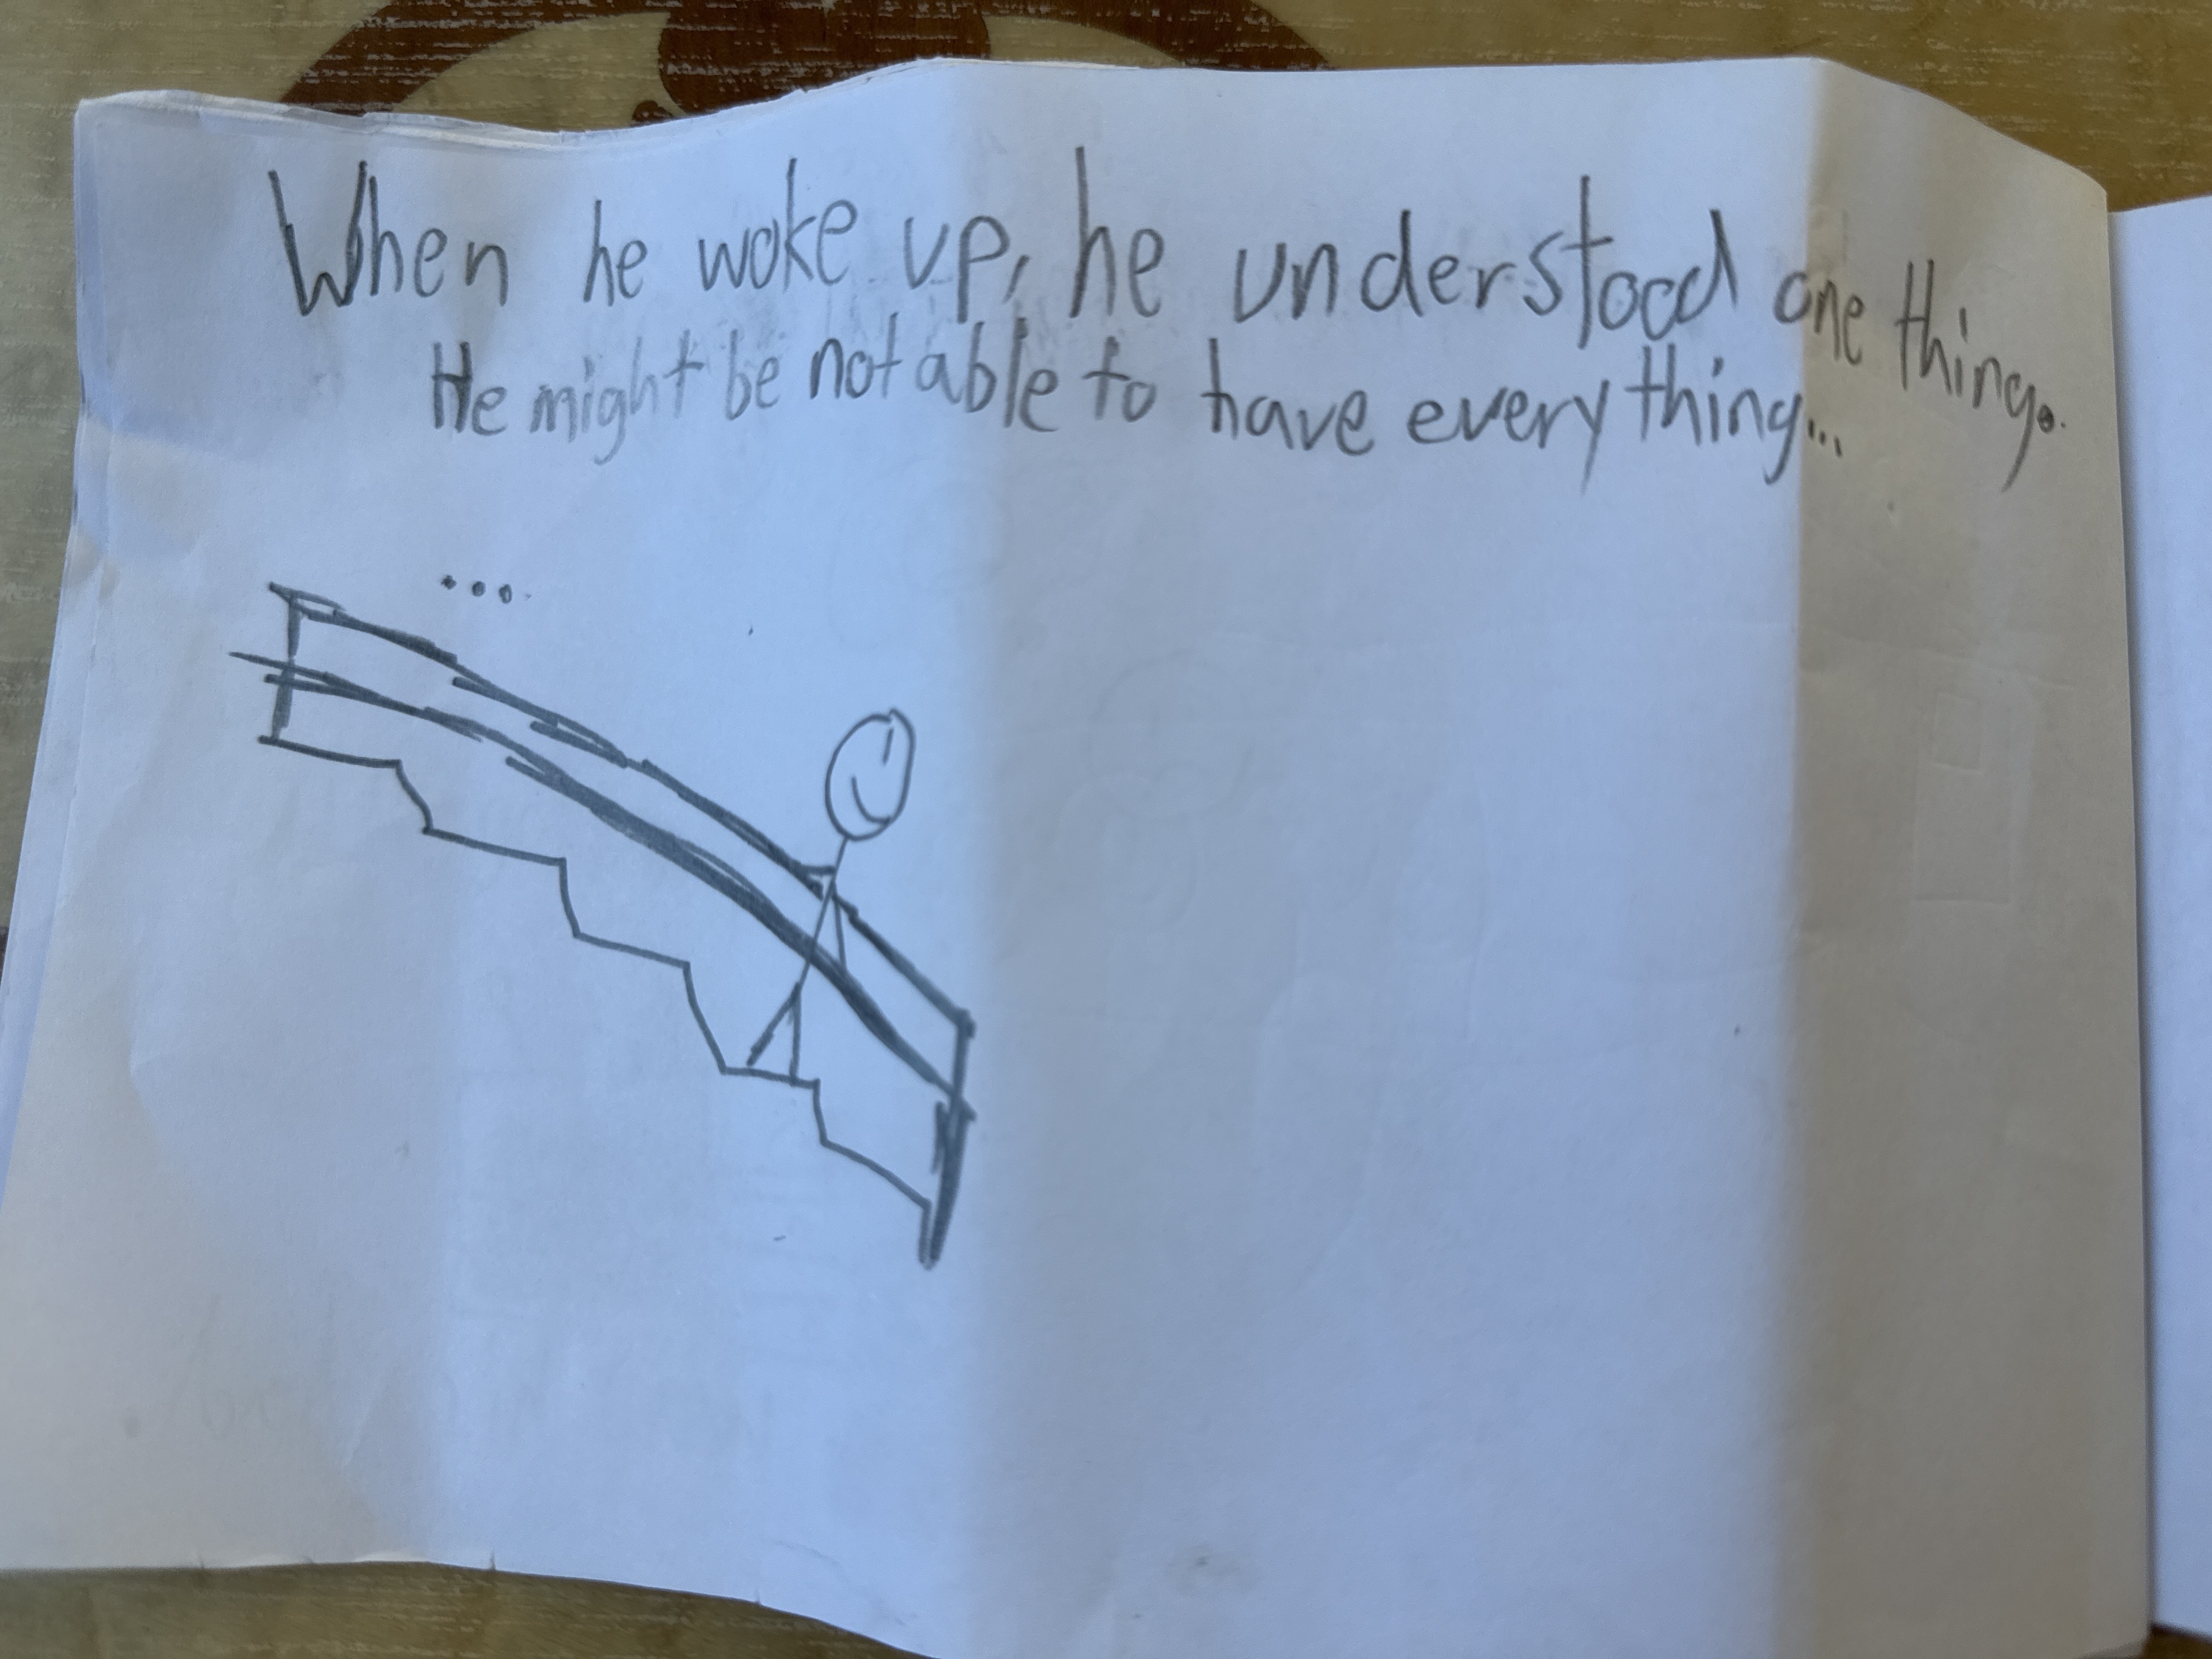 When he woke up, he understood one thing.
He might be not able to have everything...
...